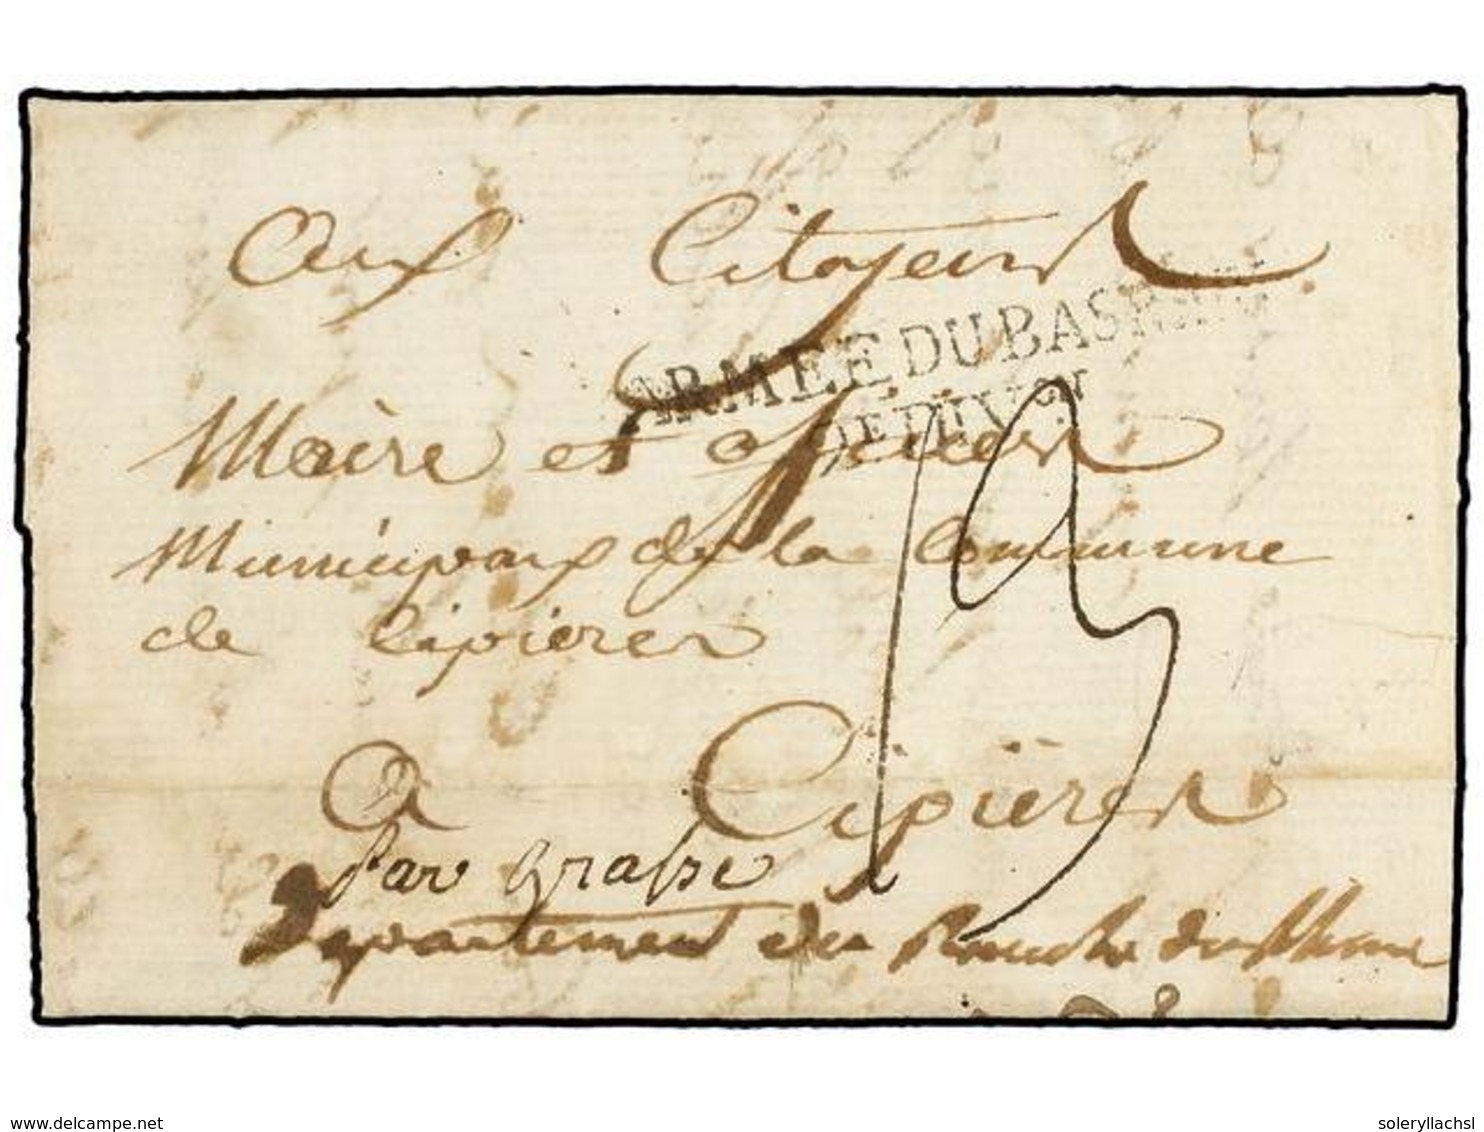 Aux Citoyens
ARMÉE DU BAS RHIN
Ie DIV.on
Maire et officiers
Municipaux de la Commune
de Cipieres
13
a Cipïeres
par grasse
Departement du Bouche du Rhone
delcampe.net
soleryllachsl